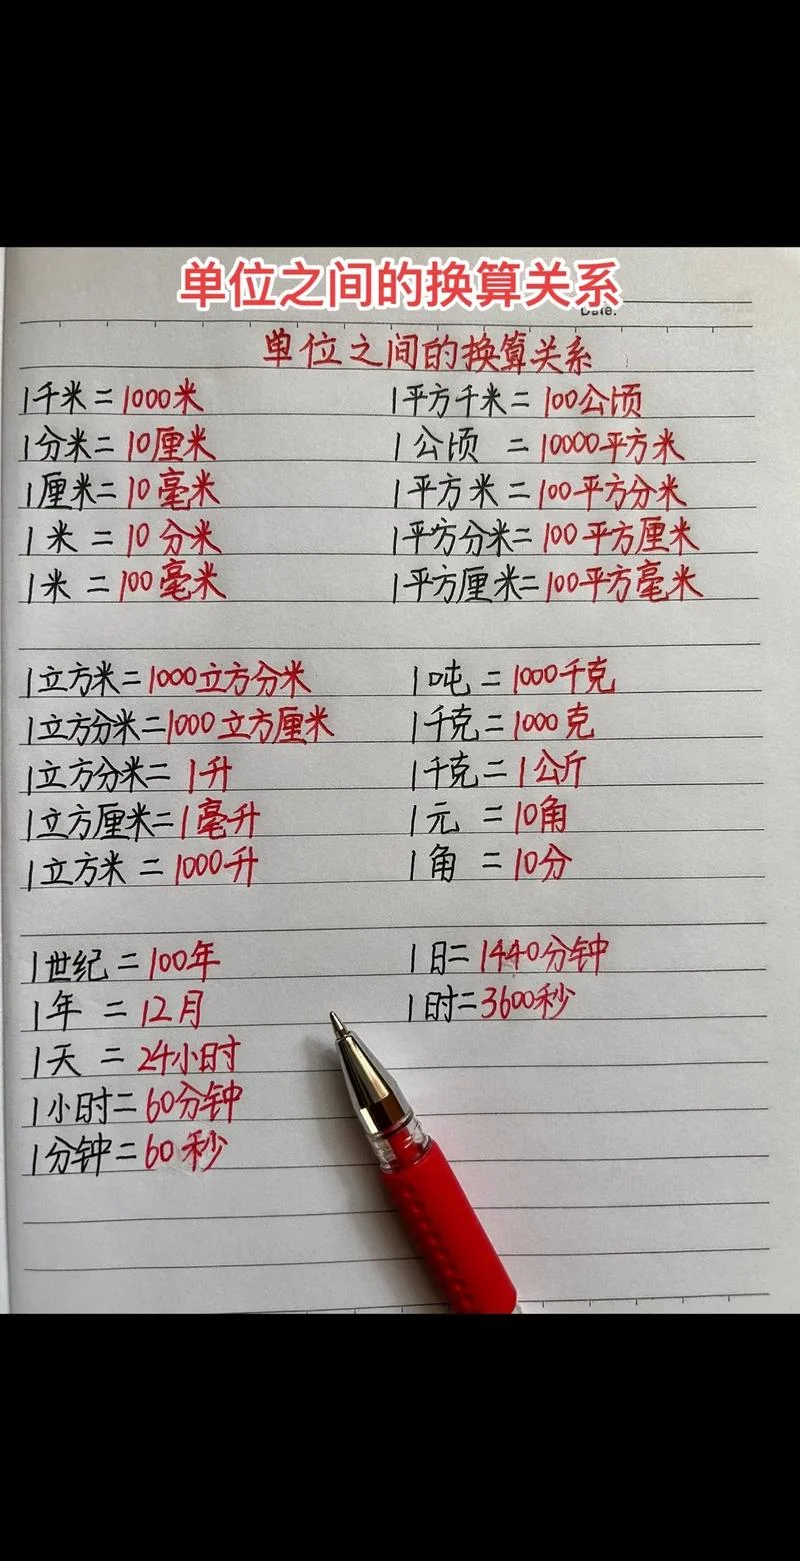 单位之间的换算关系
Date:
单位之间的换算关系
1千米=1000米
1分米=10厘米
1厘米=10毫米
1米=10分米
1米=100毫米
1平方千米=100公顷
1公顷=10000平方米
1平方米=100平方分米
1平方分米=100平方厘米
1平方厘米=100平方毫米
1立方米=1000立方分米
1立方分米=1000立方厘米
1立方分米=1升
1立方厘米=1毫升
1立方米=1000升
1吨=1000千克
1千克=1000克
1千克=1公斤
1元=10角
1角=10分
1世纪=100年
1年=12月
1天=24小时
1小时=60分钟
1分钟=60秒
1日=1440分钟
1时=3600秒